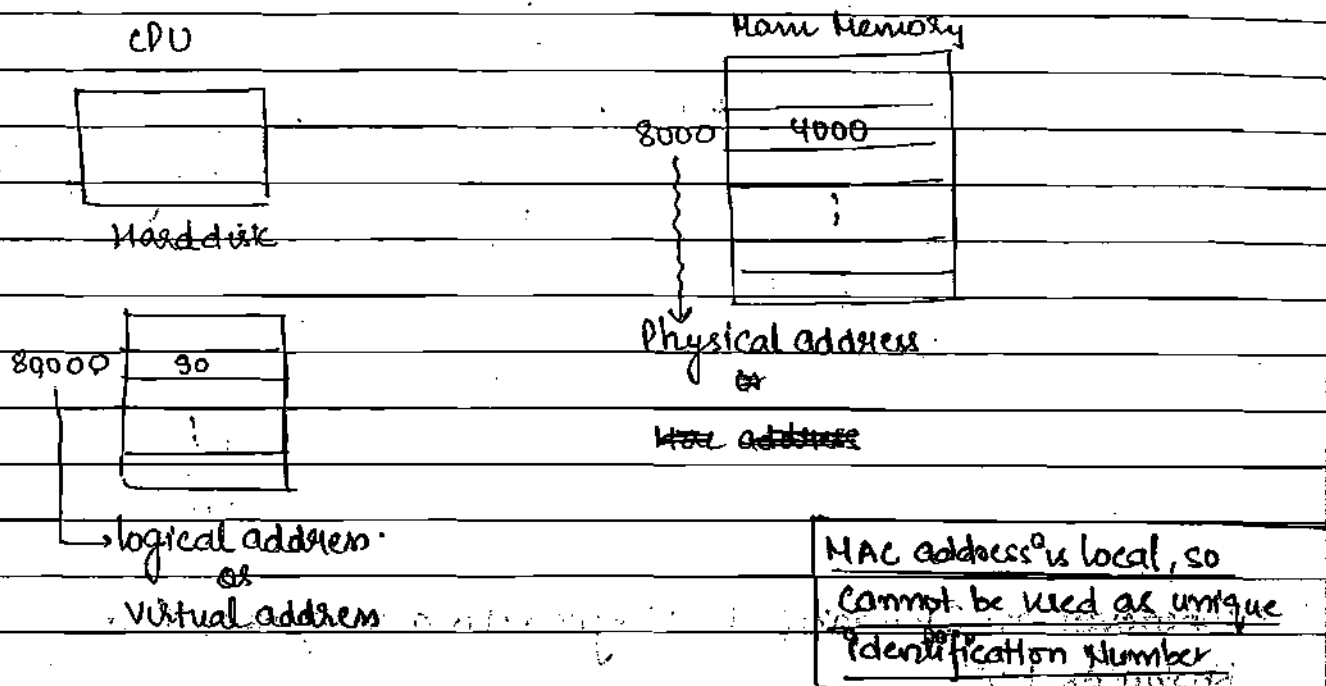 CPU
Main Memory
8000 4000
Harddisk
Physical address
or
89000 90
logical address.
or
Virtual address
MAC address is local, so
cannot be used as unique
identification Number.